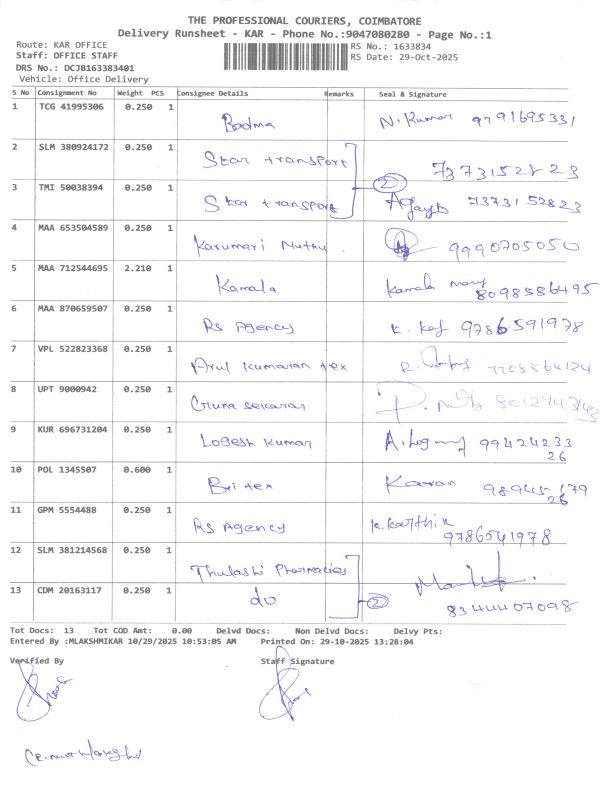 THE PROFESSIONAL COURIERS, COIMBATORE
Delivery Runsheet - KAR - Phone No.:9047080280 - Page No.:1
Route: KAR OFFICE RS No.: 1633834
Staff: OFFICE STAFF RS Date: 29-Oct-2025
DRS No.: DCJB163383401
Vehicle: Office Delivery
S No Consignment No Weight PCS Consignee Details Remarks Seal & Signature
1 TCG 41995306 0.250 1 Badma N. Kumar 9791695331
2 SLM 380924172 0.250 1 Star transport 7373152823
3 TMI 50038394 0.250 1 Star transport 2 Ajay 7373152823
4 MAA 653504589 0.250 1 Karumari Muthu 9990705050
5 MAA 712544695 2.210 1 Kamala Kamala 8098586495
6 MAA 870659507 0.250 1 RS Agency 9786591978
7 VPL 522823368 0.250 1 Arul Kumaran tex
8 UPT 9000942 0.250 1 Guna sekaran
9 KUR 696731204 0.250 1 Logesh Kumar 9942423326
10 POL 1345507 0.600 1 Bri tex Karan
11 GPM 5554488 0.250 1 RS Agency K. Karthik 9786541978
12 SLM 381214568 0.250 1 Thulashi Pharmacies
13 CDM 20163117 0.250 1 do 2 8344407098
Tot Docs: 13 Tot COD Amt: 0.00 Delvd Docs: Non Delvd Docs: Delvy Pts:
Entered By :MLAKSHMIKAR 10/29/2025 10:53:05 AM Printed On: 29-10-2025 13:28:04
Verified By Staff Signature